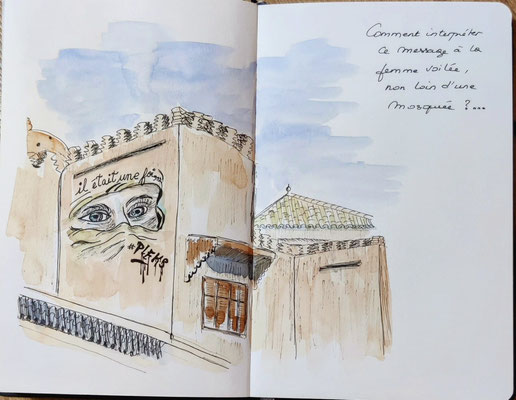 il était une fois
Comment interpréter
ce message à la
femme voilée,
non loin d'une
mosquée ?...